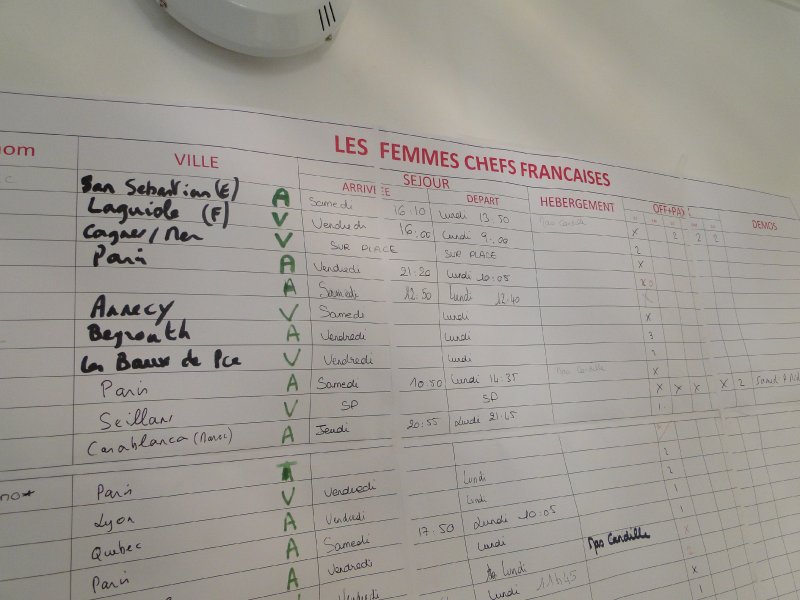 LES FEMMES CHEFS FRANCAISES
nom VILLE SEJOUR HEBERGEMENT DEMOS
ARRIVEE DEPART
San Sebastian (E) A Samedi 16:10 Lundi 13:50 Mas Candille
Laguiole (F) V Vendredi 16:00 Lundi 9:00 x 2 2 2
Cagnes/Mer V SUR PLACE SUR PLACE 2
Paris A Vendredi 21:20 Lundi 10:05 x
A Samedi 12:50 Lundi 12:40 x
Annecy V Samedi Lundi x
Beyrouth A Vendredi Lundi 3
Les Baux de Pce V Vendredi Lundi 2
Paris A Samedi 10:50 Lundi 14:35 Mas Candille x
Seillans V SP SP x x x x 2
Casablanca (Maroc) A Jeudi 20:55 Lundi 21:15 1
no* Paris V Vendredi Lundi 2
Lyon A Vendredi Lundi 2
Quebec A Samedi 17:50 Lundi 10:05 1
Paris A Vendredi Lundi Mas Candille
Vendredi Lundi
Lundi 11h45